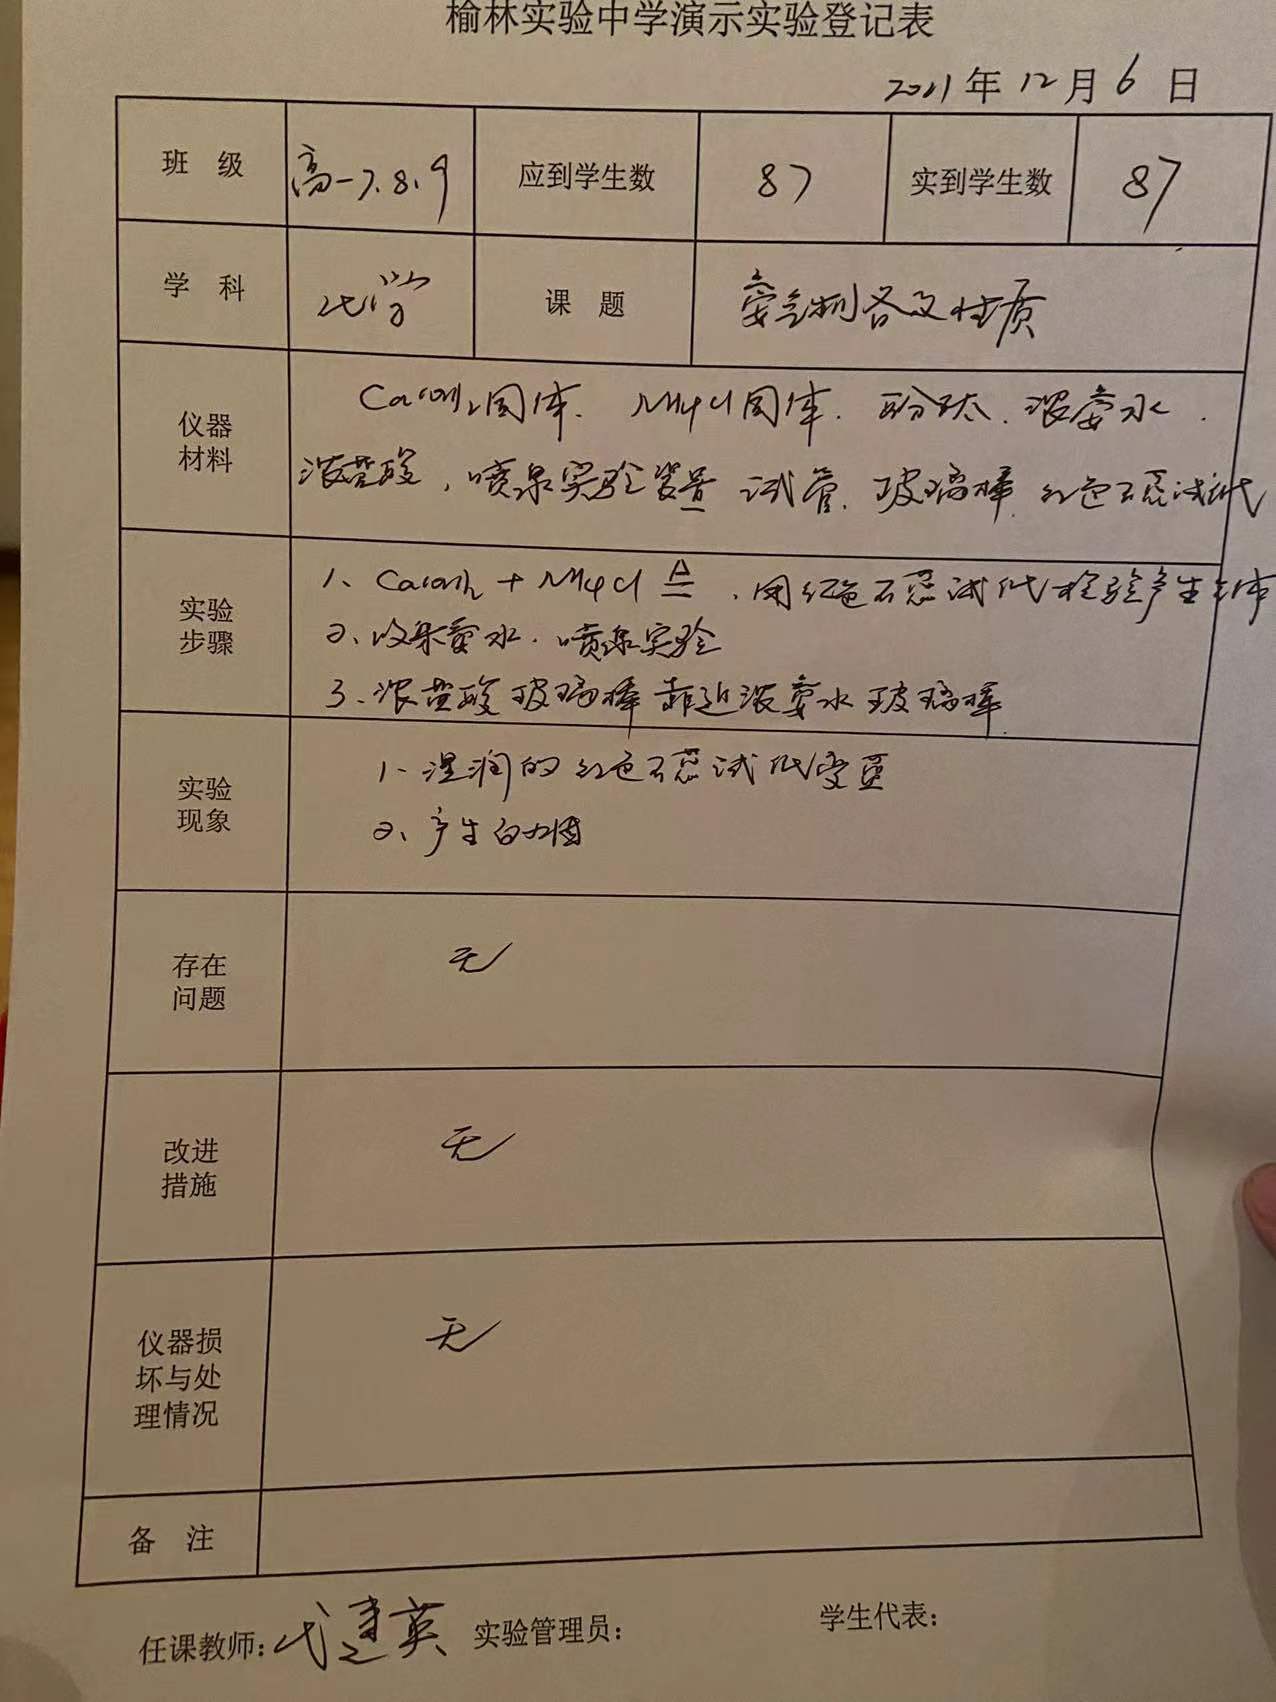 榆林实验中学演示实验登记表
2021年12月6日
班 级 高一7.8.9 应到学生数 87 实到学生数 87
学 科 化学 课 题 氨气制备及性质
仪器
材料
Ca(OH)₂固体、NH4Cl固体、酚酞、浓氨水、
浓盐酸，喷泉实验装置 试管、玻璃棒、红色石蕊试纸
实验
步骤
1、Ca(OH)₂ + NH4Cl ≜ ，用红色石蕊试纸检验产生气体
2、收集氨水、喷泉实验
3、浓盐酸玻璃棒靠近浓氨水玻璃棒
实验
现象
1、湿润的红色石蕊试纸变蓝
2、产生白烟
存在
问题
无
改进
措施
无
仪器损
坏与处
理情况
无
备 注
任课教师: 代建英 实验管理员: 学生代表: